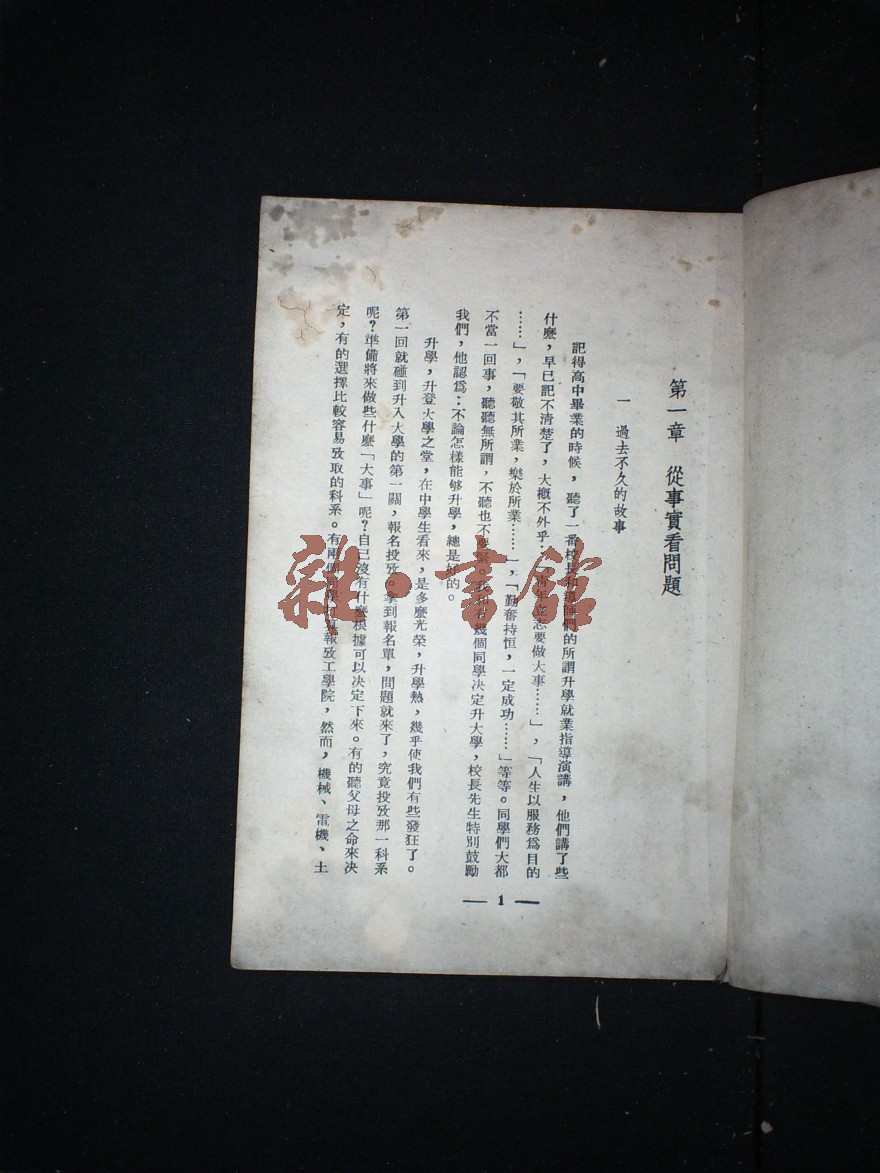 第一章　從事實看問題
一　過去不久的故事
記得高中畢業的時候，聽了一番校長和導師們的所謂升學就業指導演講，他們講了些
什麽，早已記不清楚了，大概不外乎：「靑年立志要做大事……」，「人生以服務爲目的
……」，「要敬其所業，樂於所業……」，「勤奮持恒，一定成功……」等等。同學們大都
不當一回事，聽聽無所謂，不聽也不要緊。我和有幾個同學决定升大學，校長先生特別鼓勵
我們，他認爲：不論怎樣能够升學，總是好的。
升學，升登火學之堂，在中學生看來，是多麽光榮，升學熱，幾乎使我們有些發狂了。
第一回就碰到升入大學的第一關，報名投攷。拿到報名單，問題就來了，究竟投攷那一科系
呢？準備將來做些什麽「大事」呢？自己沒有什麽根據可以决定下來。有的聽父母之命來决
定，有的選擇比較容易攷取的科系。有兩個同學打算報攷工學院，然而，機械、電機、土
— 1 —
雜·書館